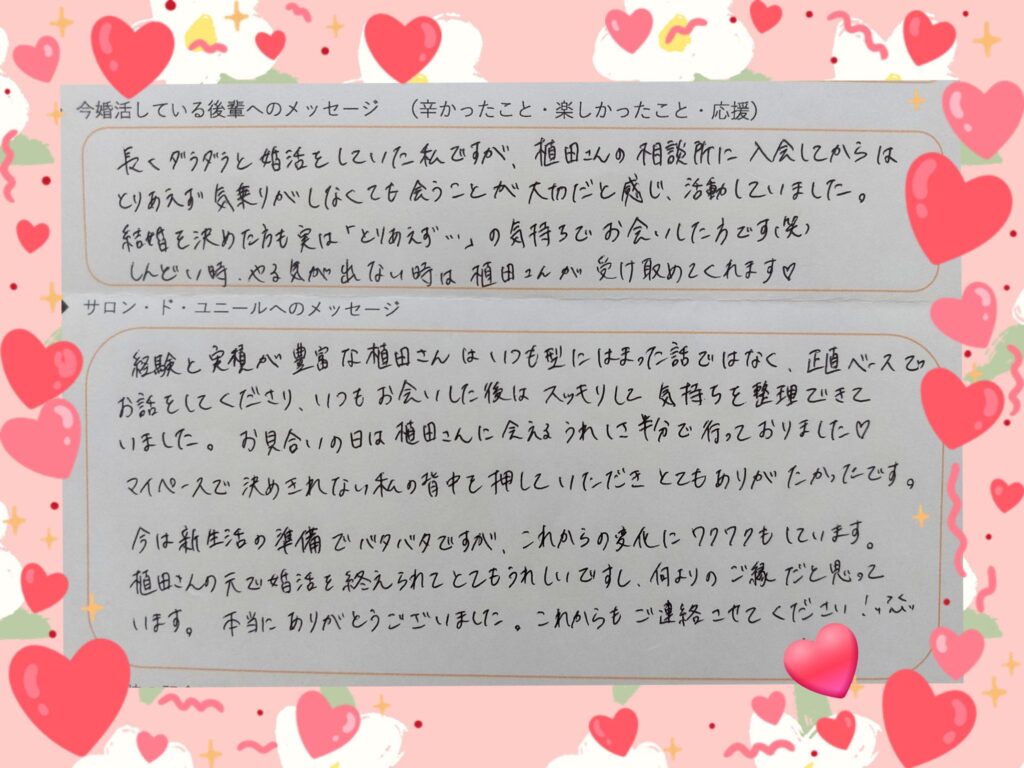 今婚活している後輩へのメッセージ （辛かったこと・楽しかったこと・応援）
長くダラダラと婚活をしていた私ですが、植田さんの相談所に入会してからは
とりあえず気乗りがしなくても会うことが大切だと感じ、活動していました。
結婚を決めた方も実は「とりあえず…」の気持ちでお会いした方です（笑）
しんどい時、やる気が出ない時は植田さんが受け取めてくれます♡
サロン・ド・ユニールへのメッセージ
経験と実積が豊富な植田さんはいつも型にはまった話ではなく、正直ベースで
お話をしてくださり、いつもお会いした後はスッキリして気持ちを整理できて
いました。お見合いの日は植田さんに会えるうれしさ半分で行っておりました♡
マイペースで決めきれない私の背中を押していただきとてもありがたかったです。
今は新生活の準備でバタバタですが、これからの変化にワクワクもしています。
植田さんの元で婚活を終えられてとてもうれしいですし、何よりのご縁だと思って
います。本当にありがとうございました。これからもご連絡させてください！